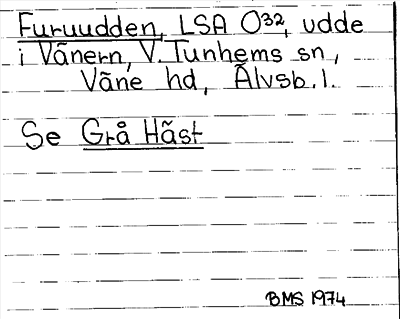 Furuudden, LSA O³², udde
i Vãnern, V. Tunhems sn,
Vãne hd, Ãlvsb. l.
Se Grå Hãst
BMS 1974